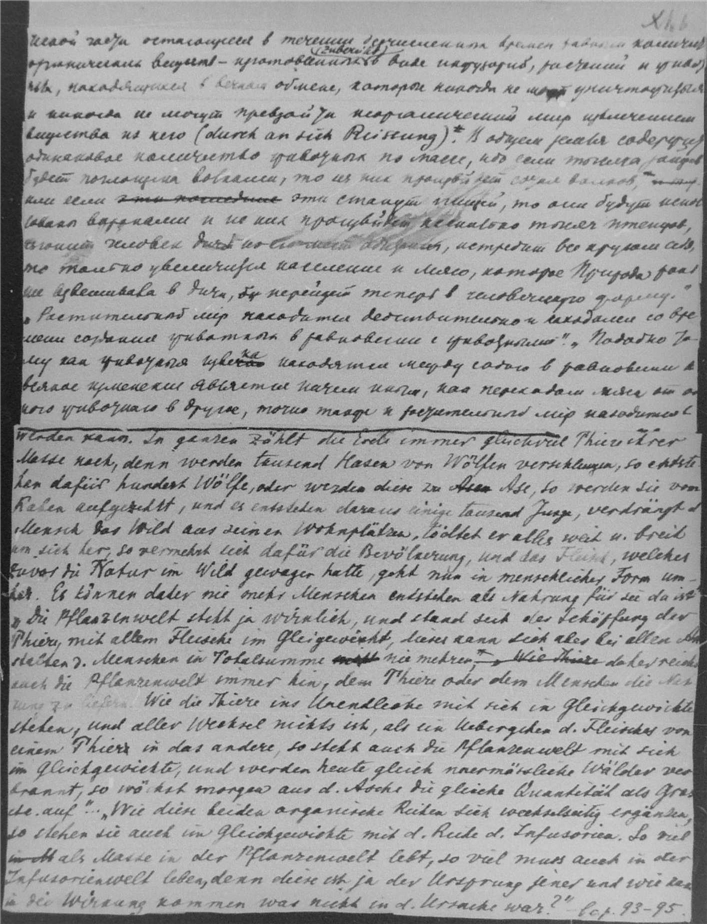 остающееся в течении времен равным
органических веществ – в виде инфузорий, растений и
находящихся в вечном обмене, которое никогда не может уничтожиться
и никогда не могут превзойти неорганический мир извлечением
вещества из него (durch an sich Reissung)*. В общем земля содержит
одинаковое количество живочных по массе, ибо если тысяча зайцев
будет поглощена волками, то из них произойдет сотня волков,
или если эти станут пищей, то они будут
воронами и из них произойдет несколько тысяч птенцов,
человек дичь из истребит все кругом себя,
то только увеличится население и мясо, которое Природа
взвешивала в дичи, перейдет теперь в человеческую форму."
„Растительный мир находится действительно и находился со вре-
мени создания животных в равновесии с живочными". „Подобно то-
му как живочныя находятся между собою в равновесии и
всякое изменение является ничем иным, как переходом мяса от од-
ного живочного в другое, точно также и растительный мир находится в
werden kann. Im ganzen zählt die Erde immer gleichviel Thiere ihrer
Masse nach, denn werden tausend Hasen von Wölfen verschlungen, so entste-
hen dafür hundert Wölfe, oder werden diese zu Ase, so werden sie vom
Raben aufgezehrt, und es entstehen daraus einige tausend Junge, verdrängt d.
Mensch das Wild aus seinen Wohnplätzen, tödtet er alles weit u. breit
um sich her, so vermehrt sich dafür die Bevölkerung, und das Fleisch, welches
zuvor die Natur im Wild gewogen hatte, geht nun in menschlicher Form um-
her. Es können daher nie mehr Menschen entstehen als Nahrung für sie da ist"
„Die Pflanzenwelt steht ja wirklich, und stand seit der Schöpfung der
Thiere, mit allem Fleische im Gleigewicht, dieses kann sich aber bei allen An-
stalten d. Menschen in Totalsumme nie mehren, daher reicht
auch die Pflanzenwelt immer hin, dem Thiere oder dem Menschen die Nah-
rung zu liefern. Wie die Thiere ins Unendliche mit sich in Gleichgewichte
stehen, und aller Wechsel nichts ist, als ein Uebergehen d. Fleisches von
einem Thiere in das andere, so steht auch die Pflanzenwelt mit sich
im Gleichgewichte, und werden heute gleich unermässliche Wälder ver-
brannt, so wächst morgen aus d. Asche die gleiche Quantität als Gras
etc. auf".. „Wie diese beiden organische Reihen sich wechselseitig ergänzen,
so stehen sie auch im Gleichgewichte mit d. Reihe d. Infusorien. So viel
als Masse in der Pflanzenwelt lebt, so viel muss auch in der
Infusorienwelt leben, denn diese ist ja der Ursprung jener und wie kann
in die Wirkung kommen was nicht in d. Ursache war?" 93–95